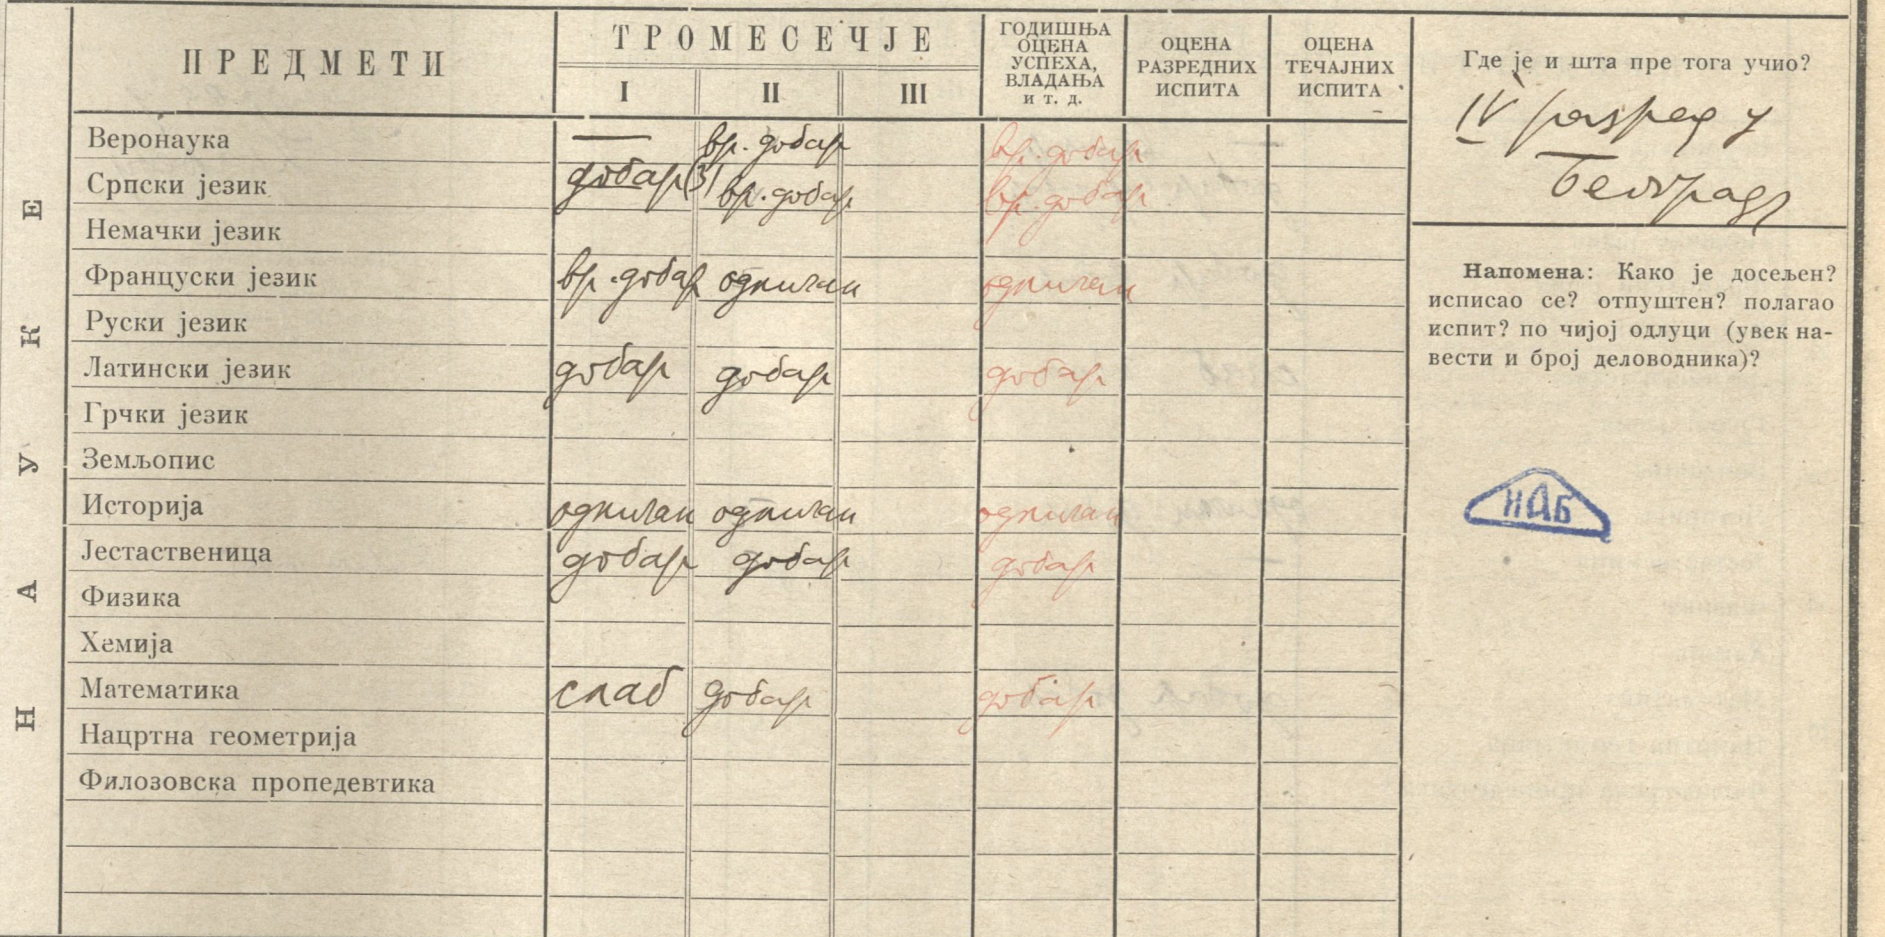 ПРЕДМЕТИ
ТРОМЕСЕЧЈЕ
I II III
ГОДИШЊА
ОЦЕНА
УСПЕХА,
ВЛАДАЊА
и т. д.
ОЦЕНА
РАЗРЕДНИХ
ИСПИТА
ОЦЕНА
ТЕЧАЈНИХ
ИСПИТА
НАУКЕ
Веронаука — вр. добар вр. добар
Српски језик добар (3) вр. добар вр. добар
Немачки језик
Француски језик вр. добар одличан одличан
Руски језик
Латински језик добар добар добар
Грчки језик
Земљопис
Историја одличан одличан одличан
Јестаственица добар добар добар
Физика
Хемија
Математика слаб добар добар
Нацртна геометрија
Филозовска пропедевтика
Где је и шта пре тога учио?
IV разред у
Београду
Напомена: Како је досељен?
исписао се? отпуштен? полагао
испит? по чијој одлуци (увек на-
вести и број деловодника)?
ИАБ